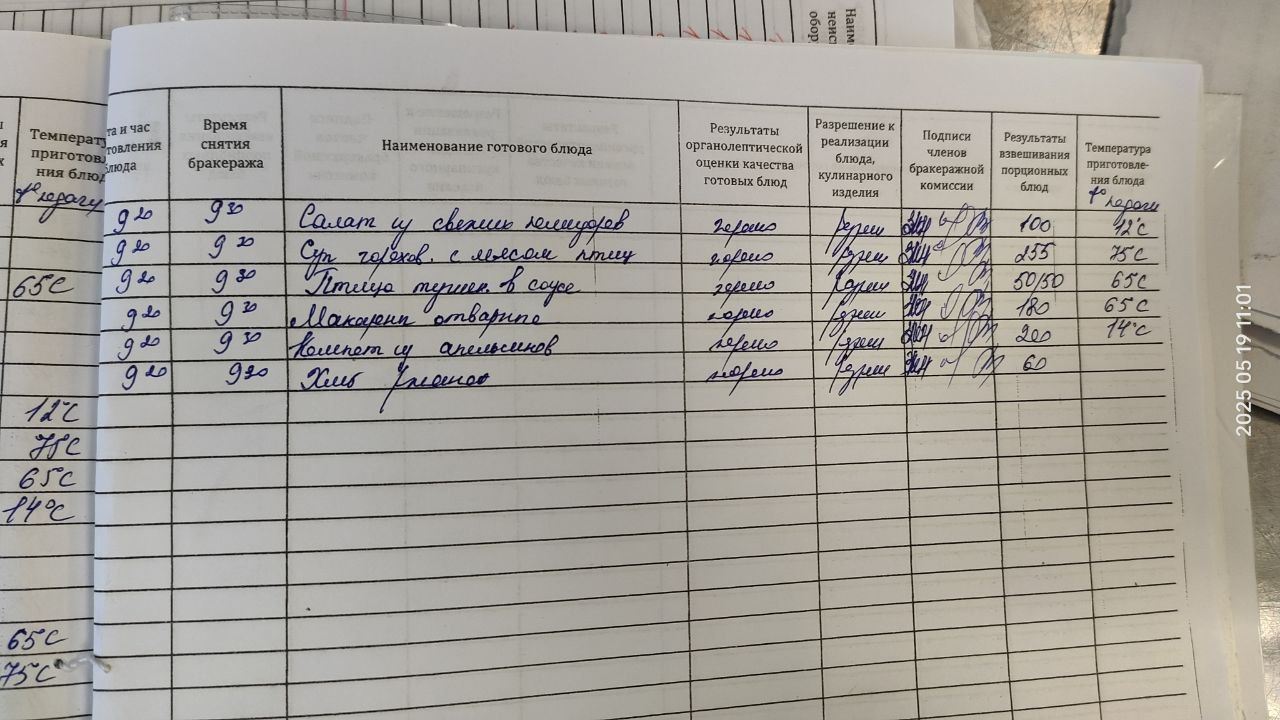 Наим
неис
обор
Температу
приготов
ния блюд
t° подачи
65°С
12°С
75°С
65°С
14°С
65°С
75°С
та и час
товления
блюда
Время
снятия
бракеража
Наименование готового блюда
Результаты
органолептической
оценки качества
готовых блюд
Разрешение к
реализации
блюда,
кулинарного
изделия
Подписи
членов
бракеражной
комиссии
Результаты
взвешивания
порционных
блюд
Температура
приготовле-
ния блюда
t° подачи
9 20 9 30 Салат из свежих помидоров хорошо разреш 100 12°С
9 20 9 30 Суп горохов. с мясом птиц хорошо разреш 75°С
9 20 9 30 Птица тушен. в соусе хорошо разреш 50/50 65°С
9 20 9 30 Макароны отварные хорошо разреш 180 65°С
9 20 9 30 Компот из апельсинов хорошо разреш 200 14°С
9 20 9 30 Хлеб Ржаной хорошо разреш 60
2025 05 19 11:01